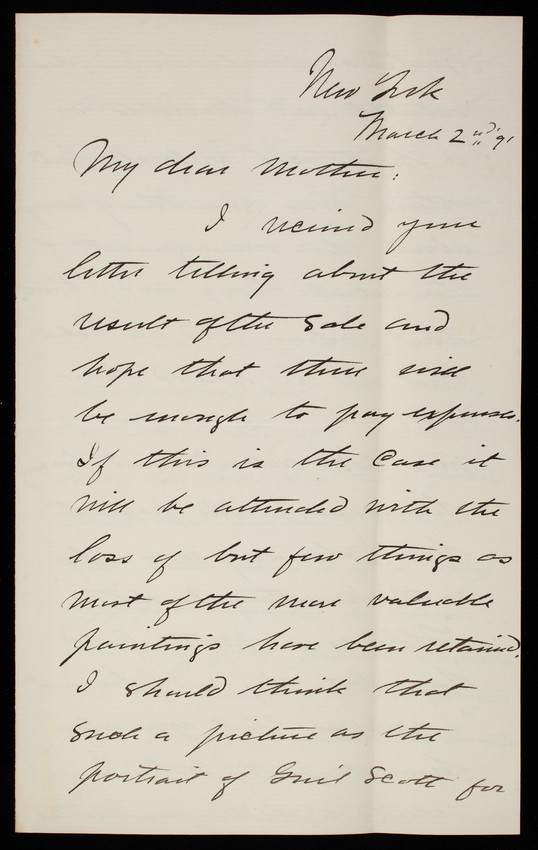 New York
March 2nd 91
My dear Mother:
I received your
letter telling about the
result of the Sale and
hope that there will
be enough to pay expenses.
If this is the Case it
will be attended with the
loss of but few things as
most of the more valuable
paintings have been retained.
I should think that
such a picture as the
portrait of Gen'l Scott for